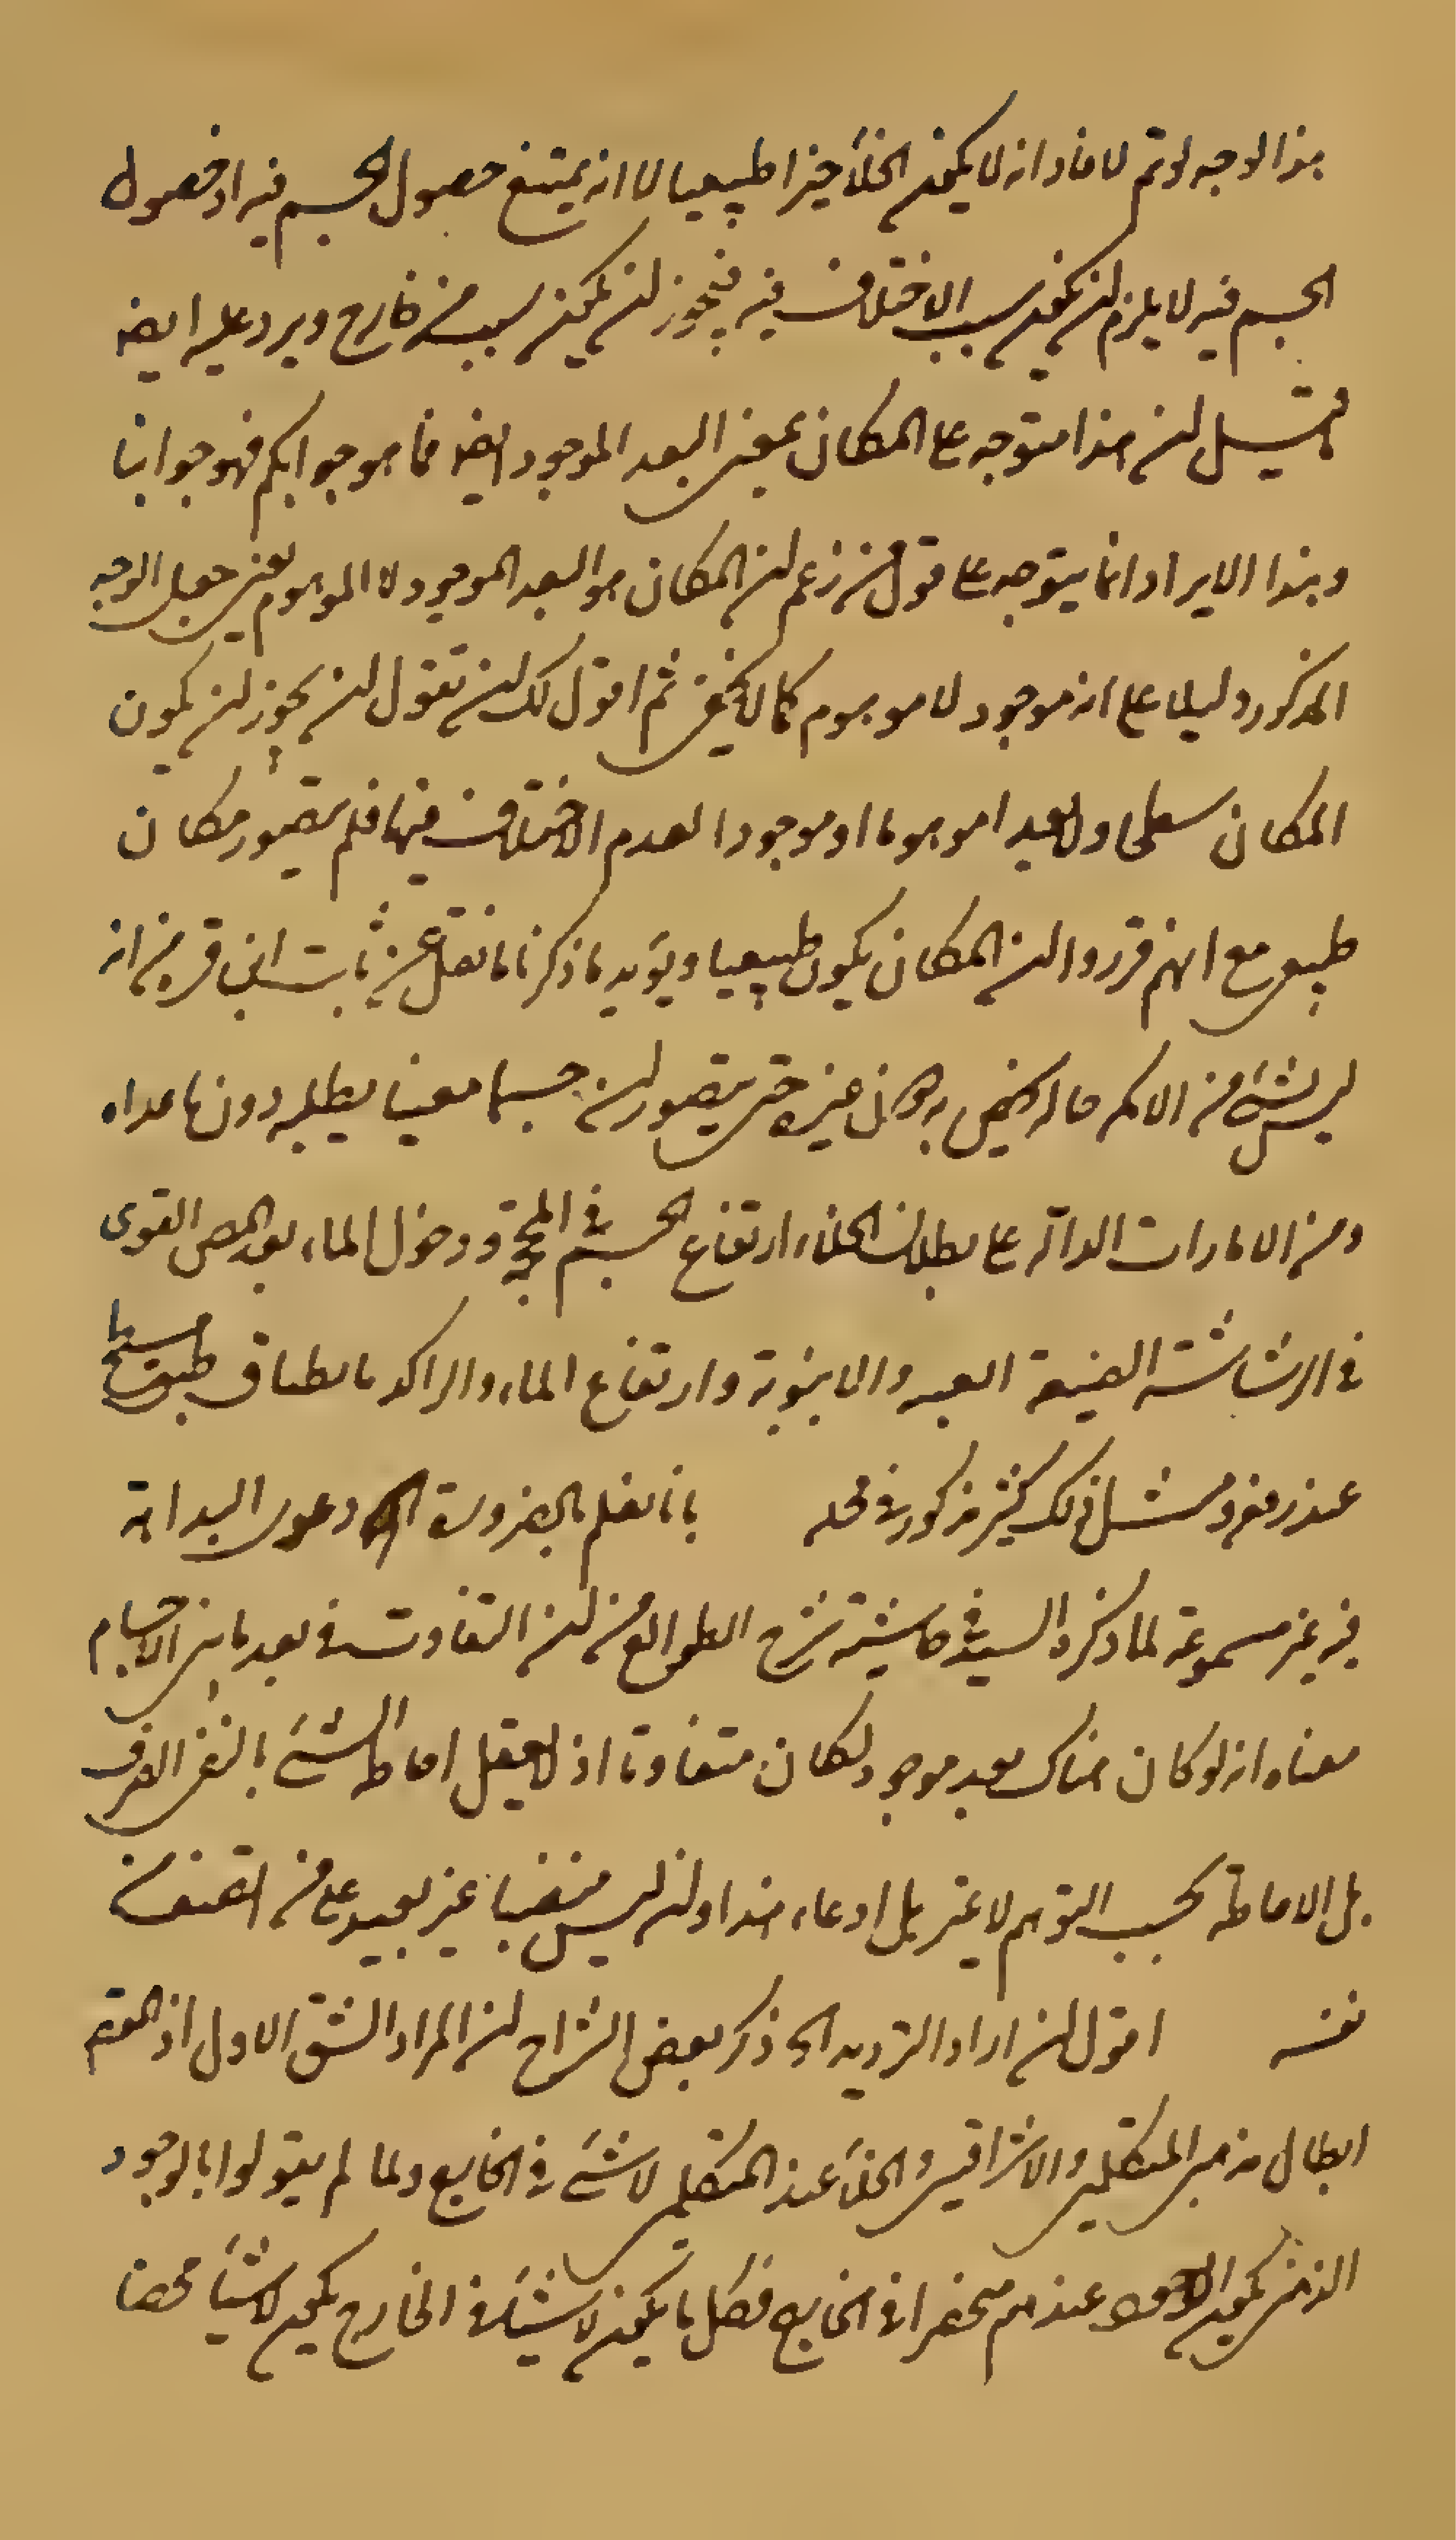 هذا الوجه لو تم لا فاد انه لا يكون الخلأ حيزا طبيعيا لا انه يمتنع حصول الجسم فيه او حصول
الجسم فيه لا يلزم ان يكون بسبب الاختلاف فيه فيجوز ان يكون بسبب من خارج ويرد عليه ايضا
قيل ان هذا متوجه على المكان بمعنى البعد الموجود ايضا فما هو جوابكم فهو جوابنا
وهذا الايراد انما يتوجه على قول من زعم ان المكان هو البعد الموجود لا الموهوم يعنى جعل الوجه
المذكور دليلا على انه موجود لا موهوم كما لا يخفى ثم اقول لك ان تقول ان يجوز ان يكون
المكان سطحا ولا بعدا موهوما او موجودا لعدم الاختلاف فيها فلم يتصور مكان
طبيعى مع انهم قرروا ان المكان يكون طبيعيا ويؤيد ما ذكرنا ما نقل عن ثابت ابن قره من انه
ليس لشئ من الامكنه حال يخص به دون غيره حتى يتصور ان جسما معينا يطلبه دون ما عداه
ومن الامارات الدالة على بطلان الخلاء ارتفاع الجسم فى المحجمة ودخول الماء بعد المص القوى
فى الرشاشة الضيقة والانبوبة وارتفاع الماء والراكد بانطباق طبق
عند رفعه ومثل ذلك كثير مذكور فى محله بانا نعلم بالضرورة الخ دعوى البداهة
فيه غير مسموعة لما ذكره السيد فى حاشية شرح الطوالع من ان التفاوت فى بعد ما بين الاجسام
معناه انه لو كان هناك بعد موجود لكان متفاوتا اذ لا يعقل احاطة الشئ بالنفى الصرف
بل الاحاطة بحسب التوهم لا غير بل ادعاء هذا وان ليس منفيا غير بعيد على من انصف من
نفسه اقول ان اراد الترديد الخ ذكر بعض الشراح ان المراد الشق الاول اذ المقصود
ابطال مذهبى المتكلمين والاشراقيين والخلأ عند المتكلمين لا شئ فى الخارج ولما لم يقولوا بالوجود
الذهنى يكون الوجود عندهم منحصرا فى الخارج فكل ما يكون لا شيئا فى الخارج يكون لا شيئا محضا